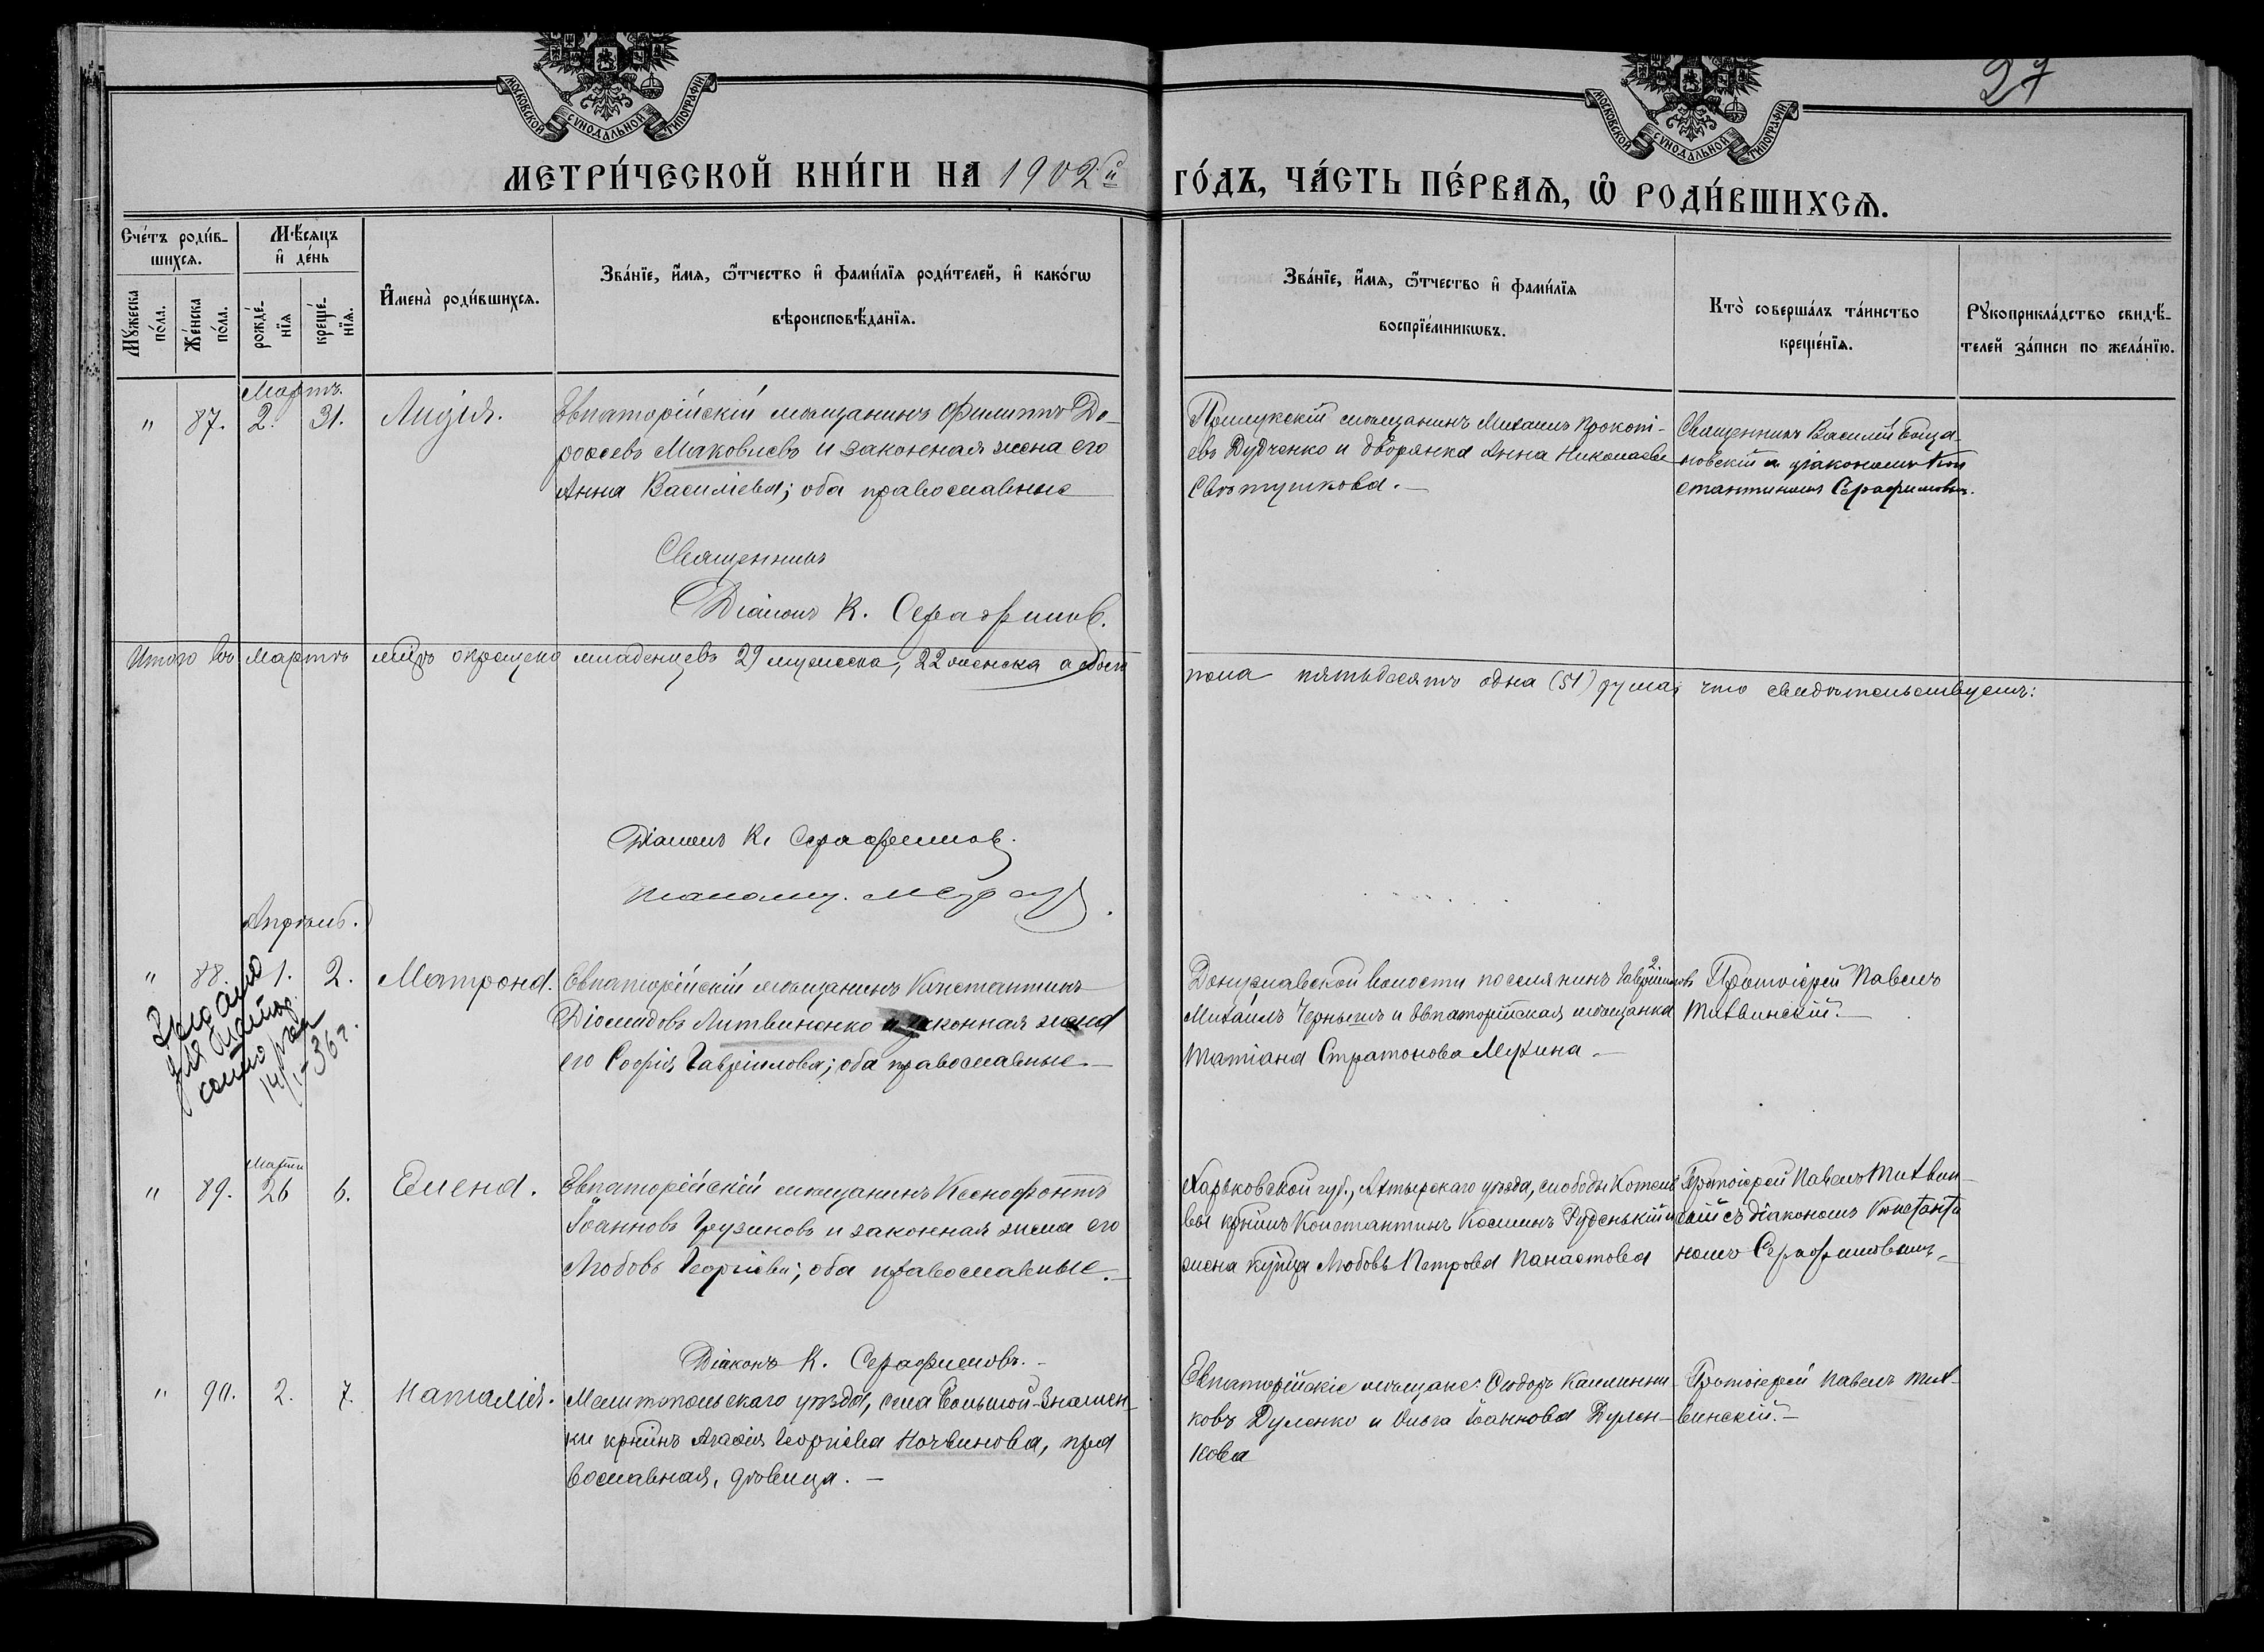 27
МОСКОВСКОЙ СѴНОДАЛЬНОЙ ТИПОГРАФІИ
МОСКОВСКОЙ СѴНОДАЛЬНОЙ ТИПОГРАФІИ
МЕТРИ́ЧЕСКОЙ КНИ́ГИ НА 1902й ГО́ДЪ, ЧА́СТЬ ПЕ́РВАѦ, Ѽ РОДИ́ВШИХСѦ.
Сче́тъ роди́в-
шихсѧ.
Мꙋ́жеска
по́ла.
Же́нска
по́ла.
Мѣ́сяцъ
и҆ де́нь
рожде́-
нїѧ
креще́-
нїѧ.
И҆мена̀ роди́вшихсѧ.
Зва́нїе, и҆́мѧ, ѻ҆́тчество и҆ фами́лїѧ роди́телей, и҆ како́гѡ
вѣроисповѣ́данїѧ.
Зва́нїе, и҆́мѧ, ѻ҆́тчество и҆ фами́лїѧ
воспрїе́мникѡвъ.
Кто̀ соверша́лъ та́инство
креще́нїѧ.
Рꙋкоприкла́дство свидѣ́-
телей за́писи по жела́нїю.
Мартъ.
" 87. 2. 31. Лидія.
Евпаторійскій мѣщанинъ Филиппъ До-
роѳеевъ Маковѣевъ и законная жена его
Анна Василіева; оба православные
Прилукскій мѣщанинъ Михаилъ Прокопі-
евъ Дудченко и дворянка Анна Николаева
Священникъ Василій
діакономъ Кон
стантиномъ Серафимовымъ.
Священникъ
Діаконъ К. Серафимов.
Итого въ Мартѣ мцѣ окрещено младенцевъ 29 мужеска, 22 женска а обоего
пола пятьдесятъ одна (51) душа, что свидѣтельствуемъ:
Діаконъ К. Серафимов.
Апрѣль.
" 88. 1. 2. Матрона.
Евпаторійскій мѣщанинъ Константинъ
Діомидовъ Литвиненко и законная жена
его Софія Гавріилова; оба православные.
Донузлавской волости поселянинъ Гавріиловъ 2
Михаилъ Чернышъ и Евпаторійская мѣщанка
Татіана Стратонова Мухина.
Протоіерей Павелъ
Тихвинскій.
14/I-36г.
Марта
" 89. 26 6. Елена.
Евпаторійскій мѣщанинъ Ксенофонтъ
Іоанновъ Грузиновъ и законная жена его
Любовь Георгіева; оба православные.
Харьковской губ., Ахтырскаго уѣзда, слободы Котель
вы крнинъ Константинъ Косминъ Руденькій и
жена купца Любовь Петрова Панаотова
Протоіерей Павелъ Тихвин-
скій съ діакономъ Константи
номъ Серафимовымъ
Діаконъ К. Серафимовъ.
" 90. 2. 7. Наталія.
Мелитопольскаго уѣзда, села Большой-Знамен-
ки крнинъ Агаѳія Георгіева Ночвинова, пра
вославная, дѣвица.
Евпаторійскіе мѣщане: Ѳеодоръ Каллинни
ковъ Дуленко и Ольга Іоаннова Дулен-
кова
Протоіерей Павелъ Тих-
винскій.